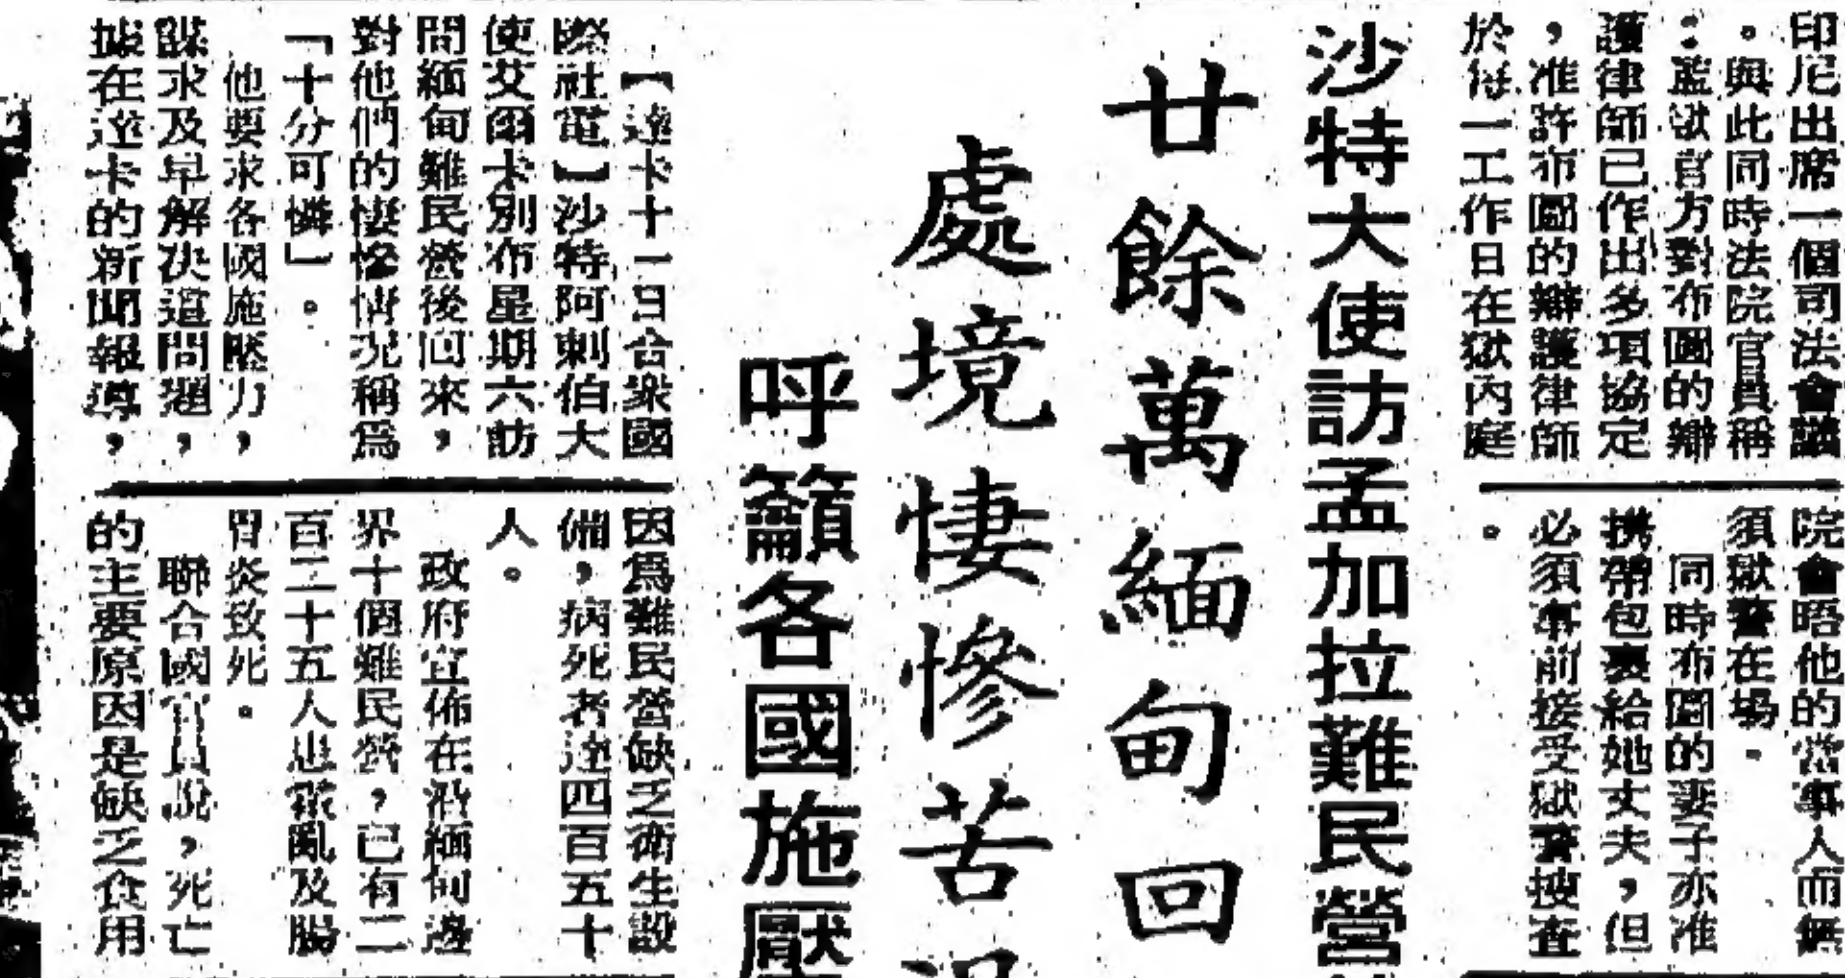 印尼出席一個司法會議
。與此同時法院官員稱
：監獄官方對布圖的辯
護律師已作出多項協定
，准許布圖的辯護律師
於每一工作日在獄內庭
院會晤他的當事人而無
須獄警在場。
同時布圖的妻子亦准
携帶包裹給她丈夫，但
必須事前接受獄警搜查
。
沙特大使訪孟加拉難民營
廿餘萬緬甸回
處境悽慘苦況
呼籲各國施壓
【達卡十一日合衆國
際社電】沙特阿剌伯大
使艾爾卡別布星期六訪
問緬甸難民營後回來，
對他們的悽慘情況稱爲
「十分可憐」。
他要求各國施壓力，
謀求及早解決這問題，
據在達卡的新聞報導，
因爲難民營缺乏衛生設
備，病死者達四百五十
人。
政府宣佈在沿緬甸邊
界十個難民營，已有二
百二十五人患霍亂及腸
胃炎致死。
聯合國官員說，死亡
的主要原因是缺乏食用